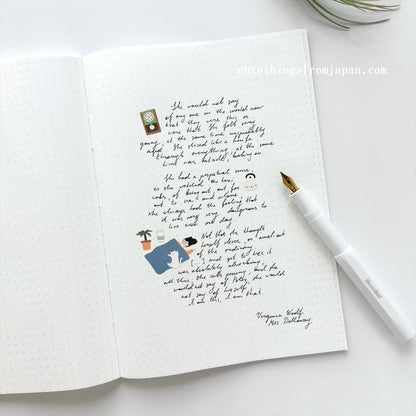 cutethingsfromjapan.com
She would not say
of any one in the world now
that they were this or
were that. She felt very
young; at the same time unspeakably
aged. She sliced like a knife
through everything; at the same
time was outside, looking on
She had a perpetual sense,
as she watched the taxi
cabs, of being out, out, far
out to sea and alone;
she always had the feeling that
it was very, very dangerous to
live even one day
Not that she thought
herself clever, or much out
of the ordinary
[...] and yet to her it
was absolutely absorbing;
all this; the cabs passing; and she
would not say of Peter, she would
not say of herself,
I am this, I am that
Virginia Woolf
Mrs. Dalloway